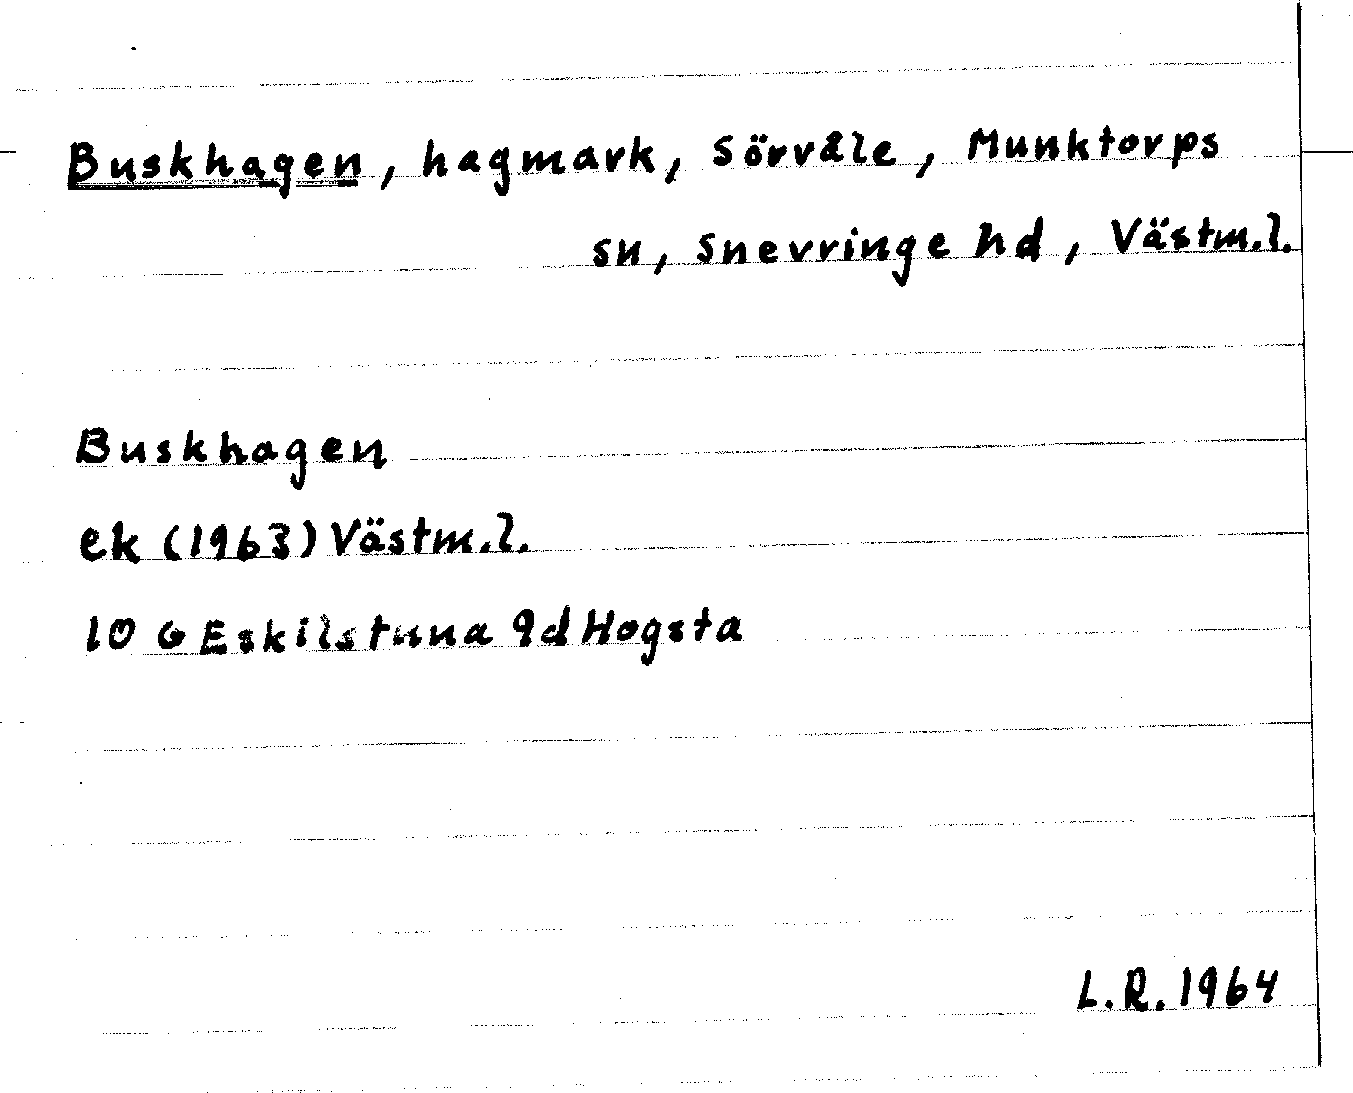 Buskhagen, hagmark, Sörvåle, Munktorps
sn, Snevringe hd, Västm.l.
Buskhagen
ek (1963) Västm.l.
10 G Eskilstuna 9d Hogsta
L.R. 1964